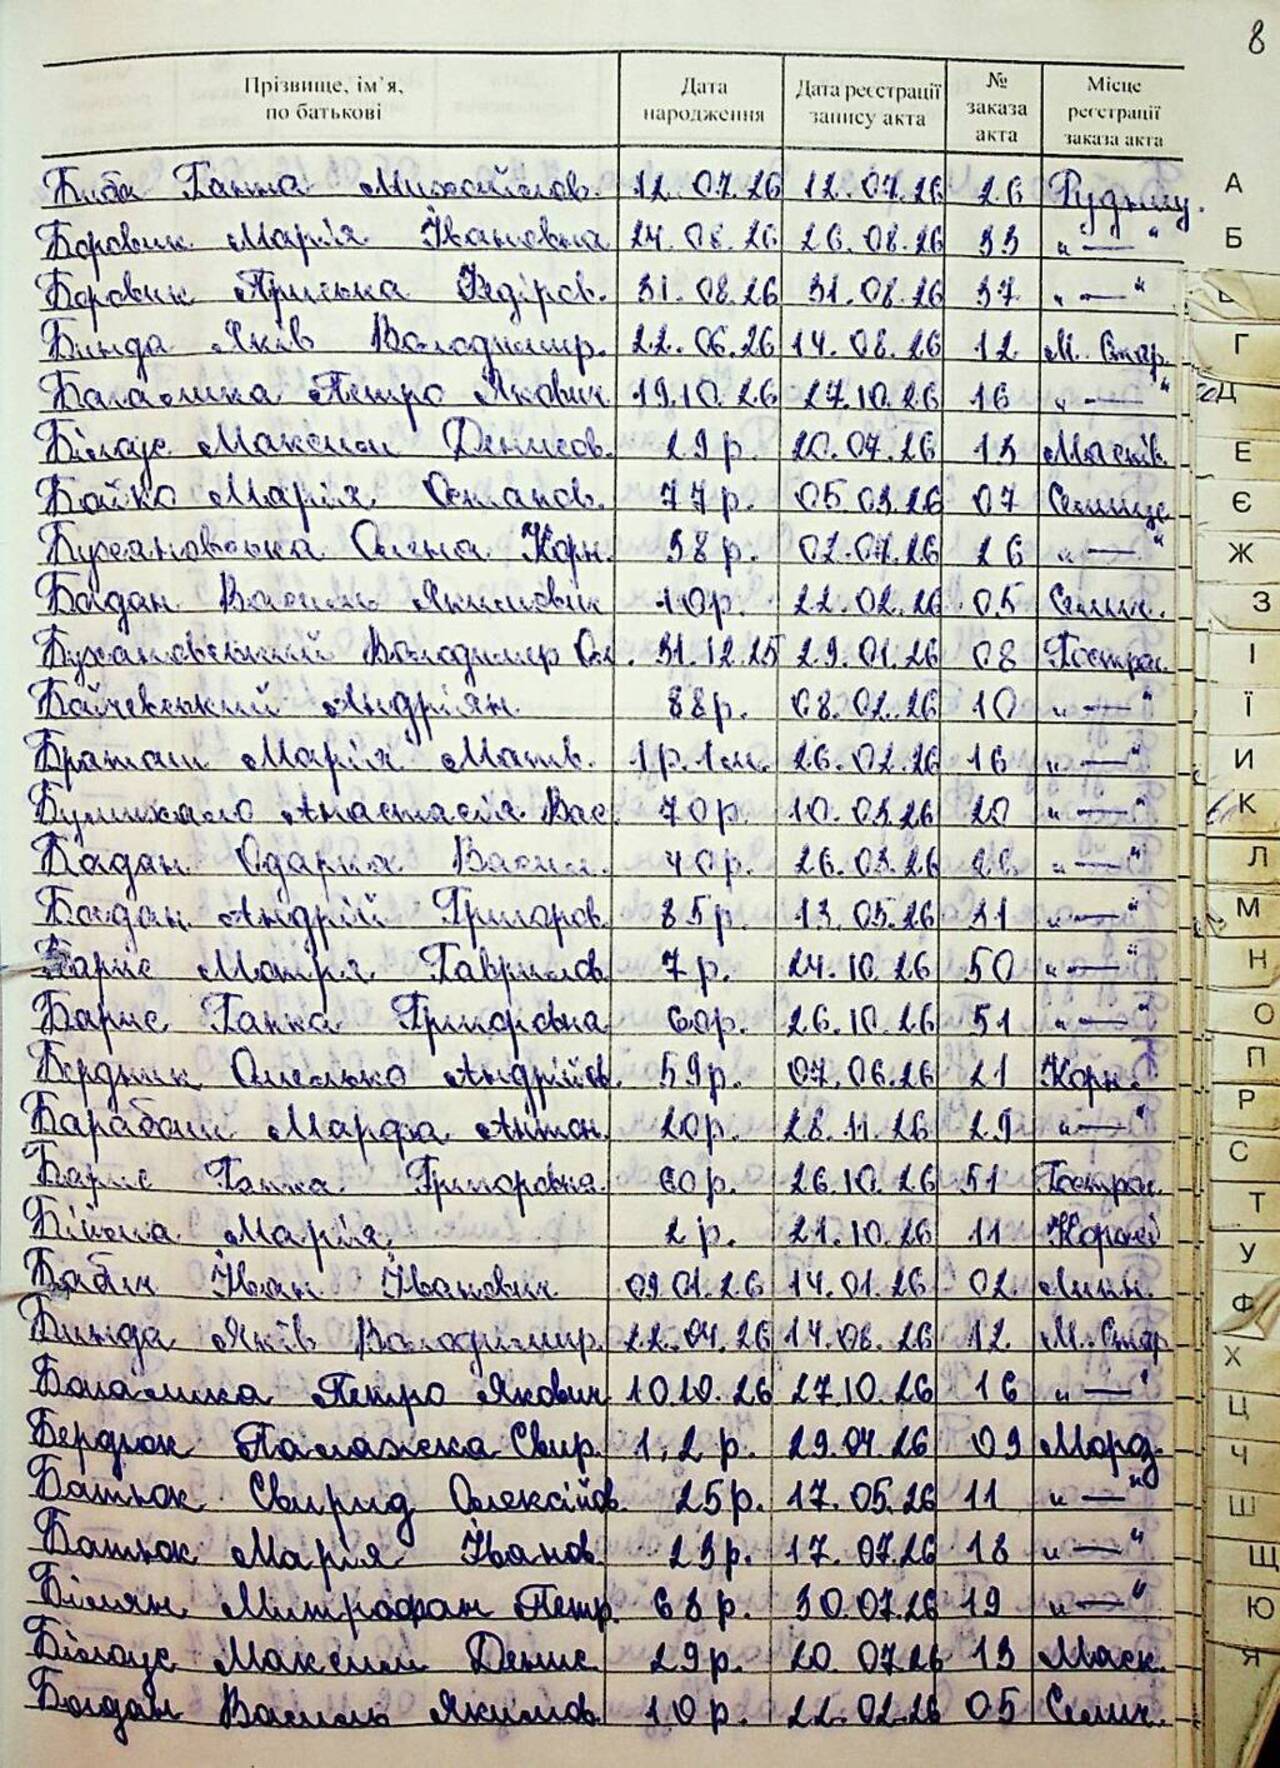 8
Прізвище, ім'я, по батькові Дата народження Дата реєстрації запису акта № заказа акта Місце реєстрації заказа акта
Биба Ганна Михайлов. 12.07.26 12.07.26 26 Рудниц.
Боровик Марія Івановна 24.08.26 26.08.26 33 "—"
Боровик Приська Федіров. 31.08.26 31.08.26 37 "—"
Бинда Яків Володимир. 22.06.26 14.08.26 12 М. Стар.
Богомика Петро Якович 19.10.26 27.10.26 16 "—"
Білоус Максим Денисов. 29р. 20.07.26 13 Масків.
Бойко Марія Остапов. 77р. 05.03.26 07 Селище
Бухановська Олена Корн. 38р. 02.07.26 26 "—"
Богдан Василь Якимович 10р. 22.02.26 05 Селищ.
Бухановський Володимир Ол. 31.12.25 29.01.26 08 Гострол.
Байчевський Андріян 88р. 08.02.26 10 "—"
Браташ Марія Матв. 1р.1м. 26.02.26 16 "—"
Анастасія Вас. 70р. 10.03.26 20 "—"
Богдан Одарка Васил. 40р. 26.03.26 "—"
Богдан Андрій Григоров. 85р. 13.05.26 31 "—"
Барис Мотря Гаврилов. 7р. 24.10.26 50 "—"
Барис Ганна Григоровна 60р. 26.10.26 51 "—"
Бердник Омелько Андрійов. 59р. 07.06.26 21 Корн.
Барабаш Марфа Антон. 20р. 28.11.26 29 "—"
Барис Ганна Григоровна. 60р. 26.10.26 51 Гострол.
Марія 2р. 21.10.26 11
Бабич Іван Іванович 09.01.26 14.01.26 02 Липн.
Бинда Яків Володимир. 22.04.26 14.08.26 12. М. Стар
Богомика Петро Якович 10.10.26 27.10.26 16 "—"
Бердюк Палажка Свир. 1,2р. 29.04.26 09 Мороз.
Батюк Свирид Олексійов. 25р. 17.05.26 11 "—"
Батюк Марія Іванов. 23р. 17.07.26 18 "—"
Білян Митрофан Петр. 68р. 30.07.26 19 "—"
Білоус Максим Денис. 29р. 20.07.26 13 Маск.
Богдан Василь Якимов. 10р. 22.02.26 05 Селищ.
А
Б
Г
Д
Е
Є
Ж
З
І
Ї
И
К
Л
М
Н
О
П
Р
С
Т
У
Ф
Х
Ц
Ч
Ш
Щ
Ю
Я